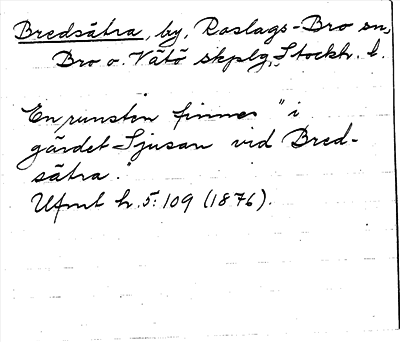 Bredsätra, by, Roslags-Bro sn,
Bro o. Vätö skplg, Stockh. l.
En runsten finnes "i
gärdet Sjusan vid Bred-
sätra."
Ufmt h. 5: 109 (1876).